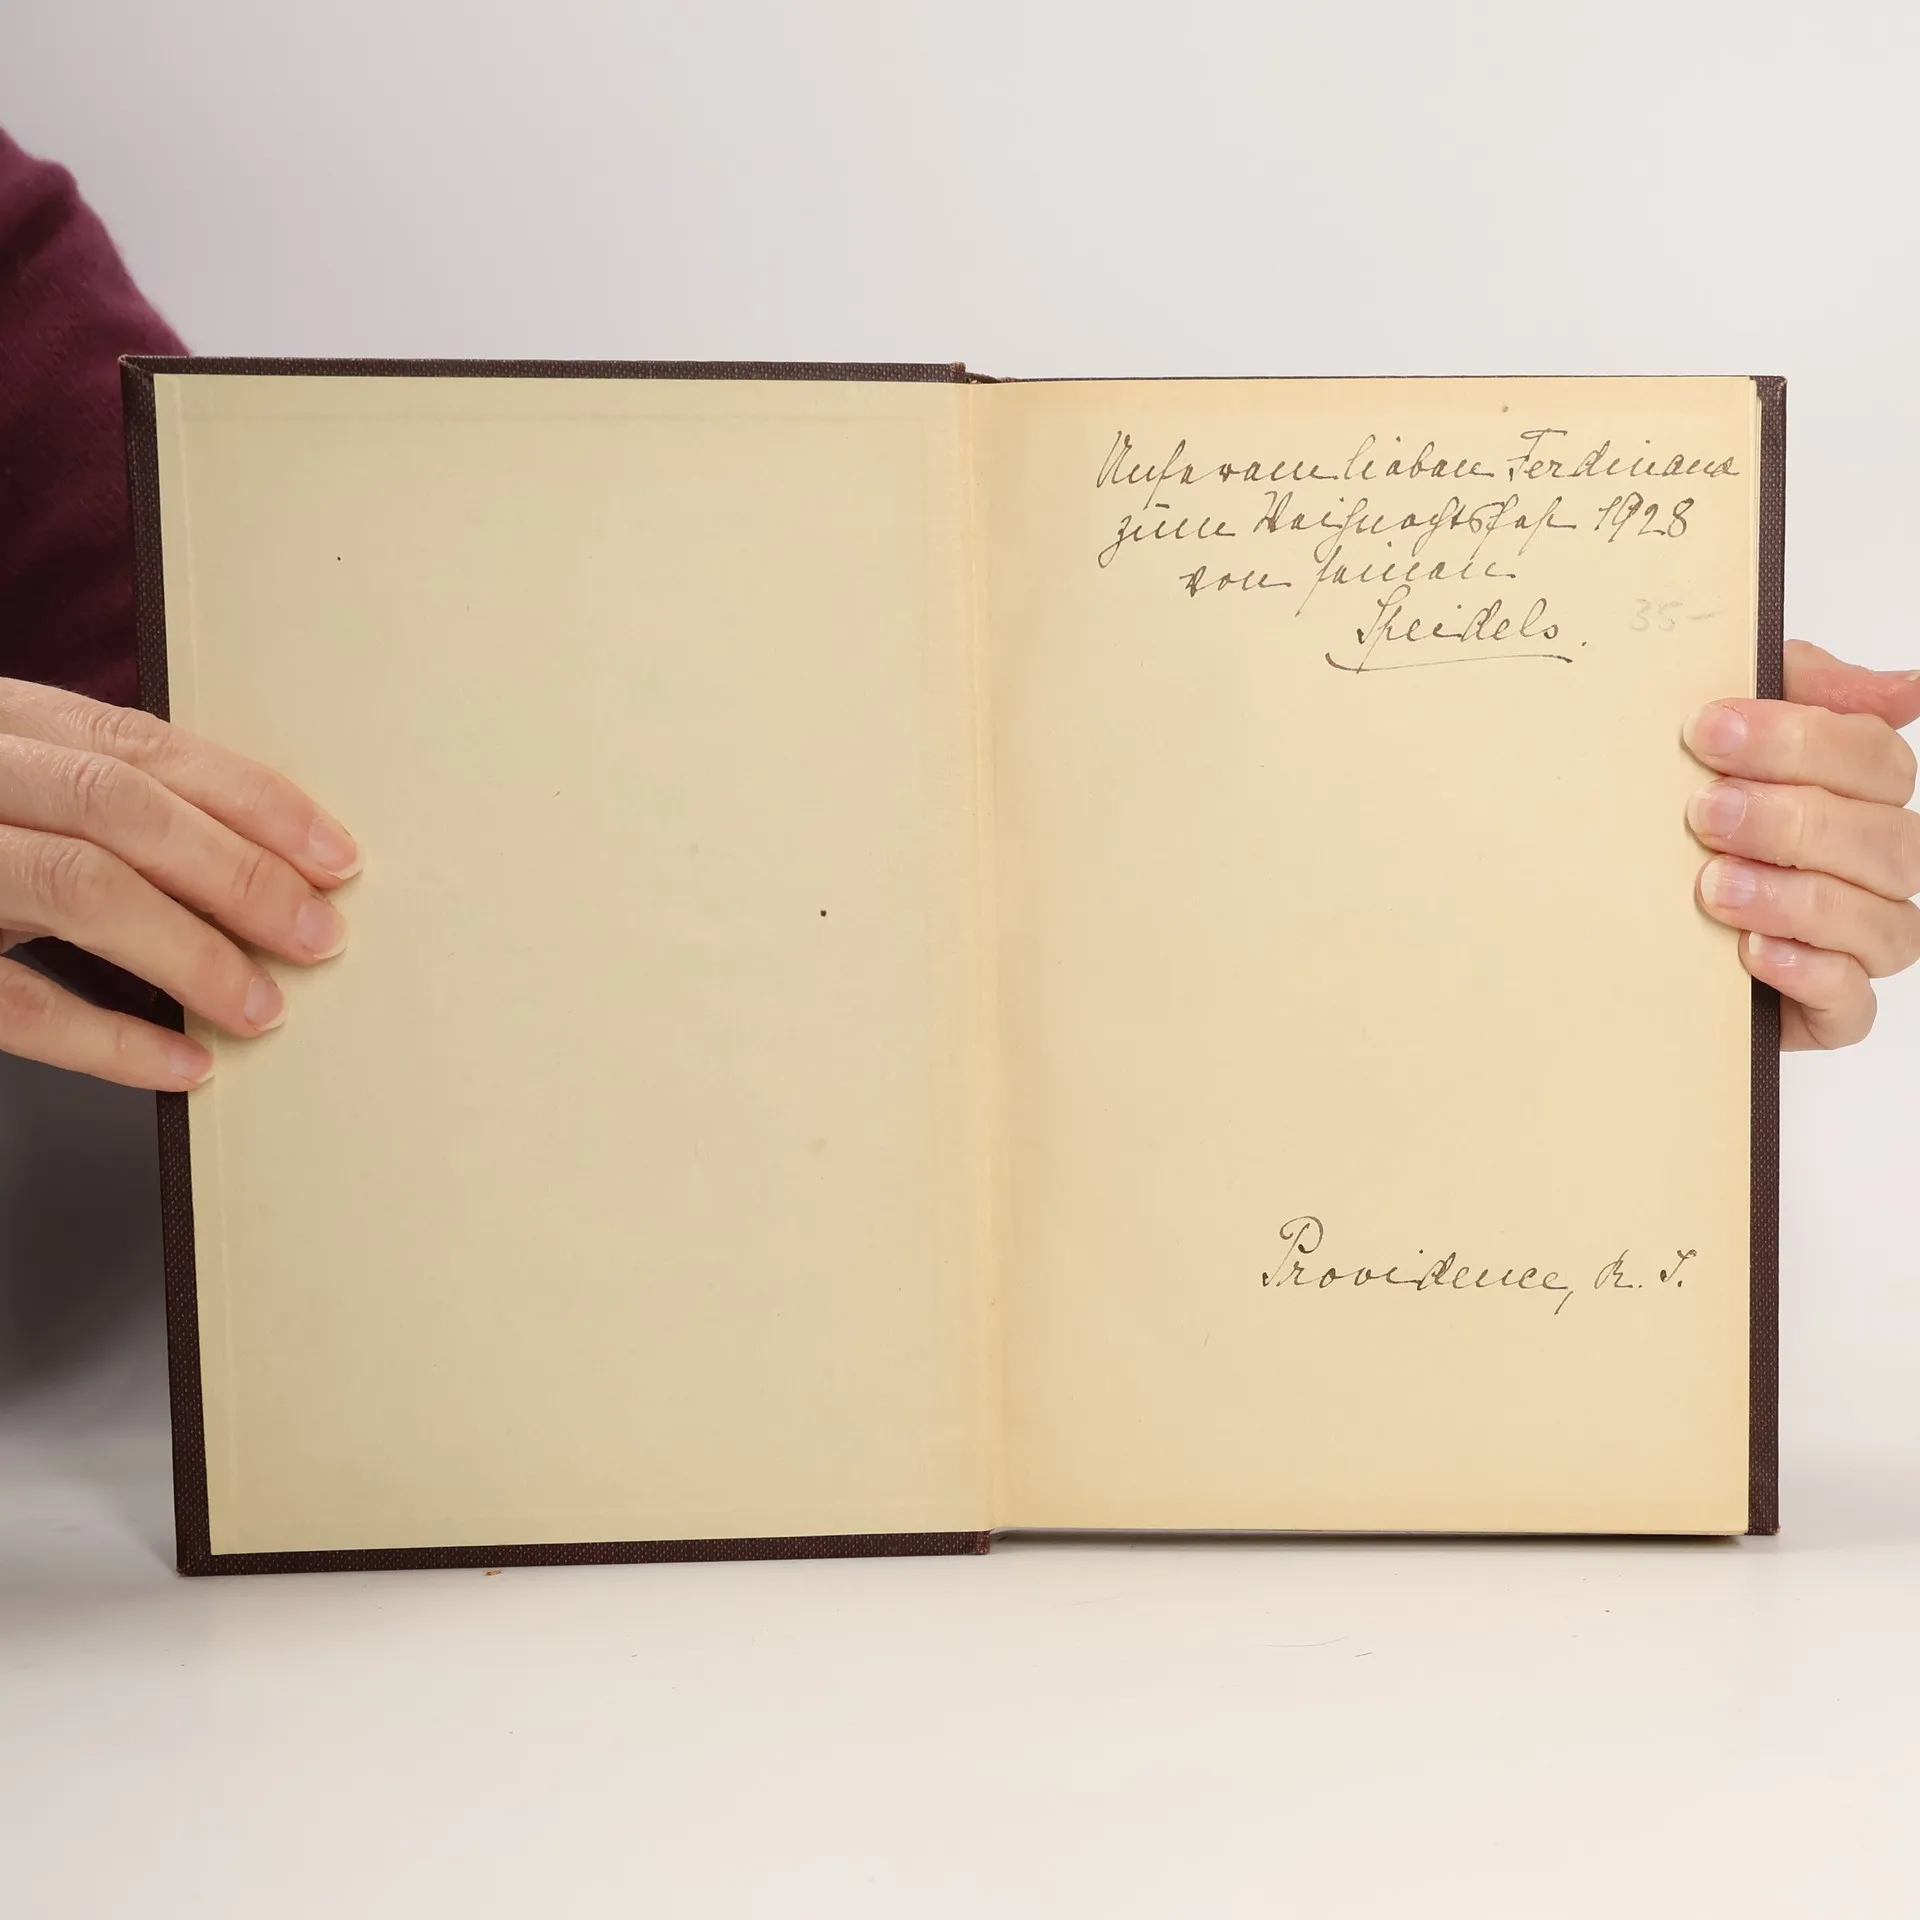 Unserem lieben Ferdinand
zum Weihnachtsfest 1928
von seinen
Speidels.
35-
Providence, R. I.